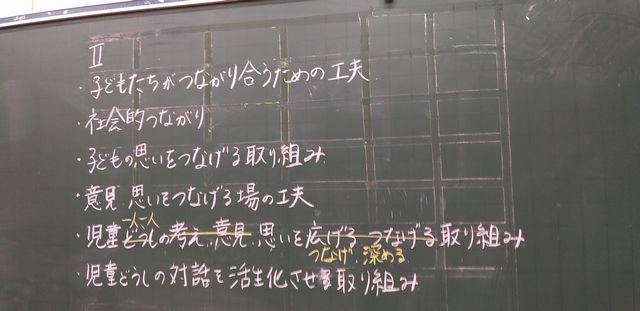 Ⅱ
・子どもたちがつながり合うための工夫
・社会的つながり
・子どもの思いをつなげる取り組み
・意見 思いをつなげる場の工夫
一人一人
・児童どうしの考え、意見、思いを広げる つなげる取り組み
つなげ 深める
・児童どうしの対話を活性化させる取り組み